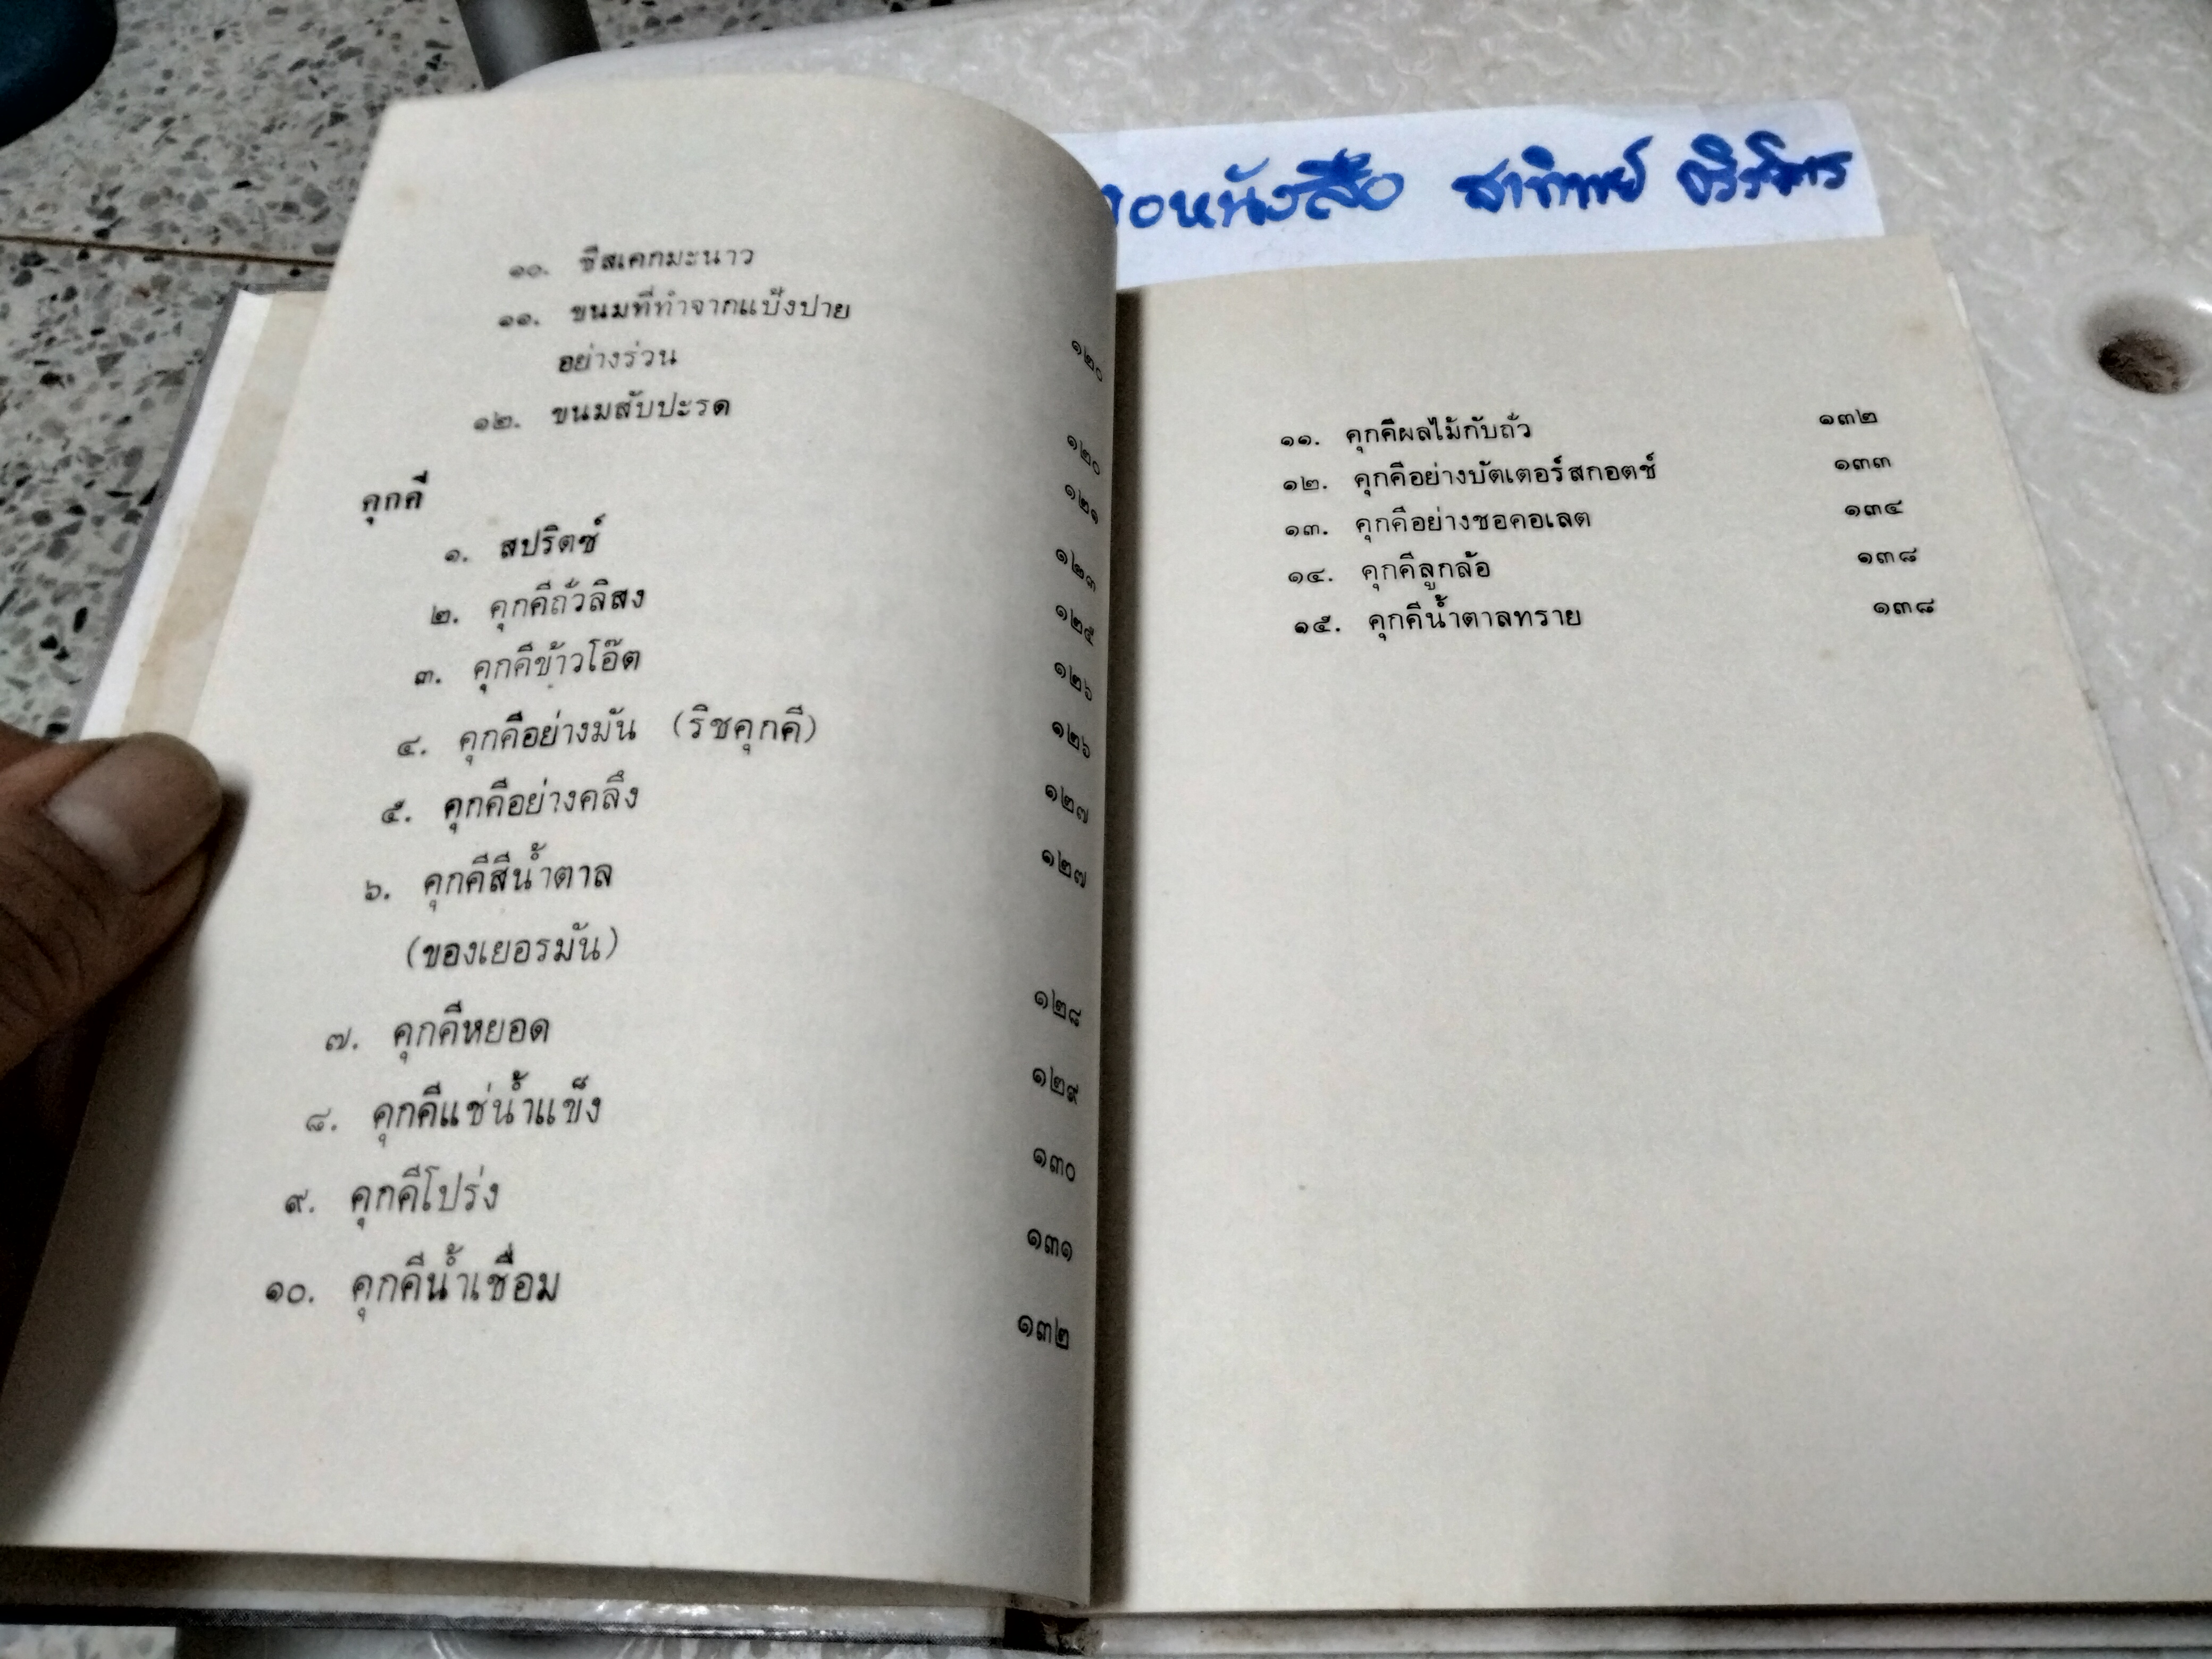 ๑๐. ชีสเคกมะนาว ๑๒๐
๑๑. ขนมที่ทำจากแป้งปาย
อย่างร่วน ๑๒๐
๑๒. ขนมสับปะรด ๑๒๑
คุกคี ๑๒๓
๑. สปริตซ์ ๑๒๕
๒. คุกคีถั่วลิสง ๑๒๖
๓. คุกคีข้าวโอ๊ต ๑๒๖
๔. คุกคีอย่างมัน (ริชคุกคี) ๑๒๗
๕. คุกคีอย่างคลึง ๑๒๗
๖. คุกคีสีน้ำตาล
(ของเยอรมัน) ๑๒๘
๗. คุกคีหยอด ๑๒๙
๘. คุกคีแช่น้ำแข็ง ๑๓๐
๙. คุกคีโปร่ง ๑๓๑
๑๐. คุกคีน้ำเชื่อม ๑๓๒
หนังสือ สาทิพย์
๑๑. คุกคีผลไม้กับถั่ว ๑๓๒
๑๒. คุกคีอย่างบัตเตอร์สกอตช์ ๑๓๓
๑๓. คุกคีอย่างชอคอเลต ๑๓๔
๑๔. คุกคีลูกล้อ ๑๓๘
๑๕. คุกคีน้ำตาลทราย ๑๓๘